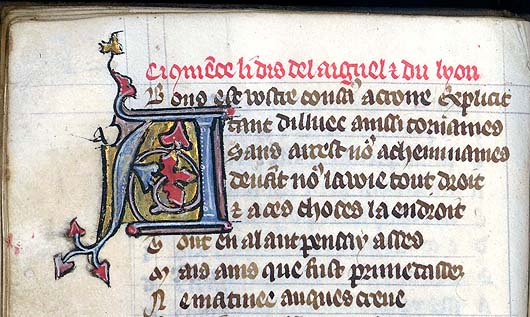 Ci qm̄ēce li dis del aignel ⁊ du lyon
Bons est vostre consaꝰ actorie Explicit
A tant dilluec ainssi tornames
Sans arrest nō acheminames
Devāt nō la voie tout droit
⁊ a ces choces la endroit
Tout en alant pensay assés
Mais ains que fust prime
Ne matinee auques creue